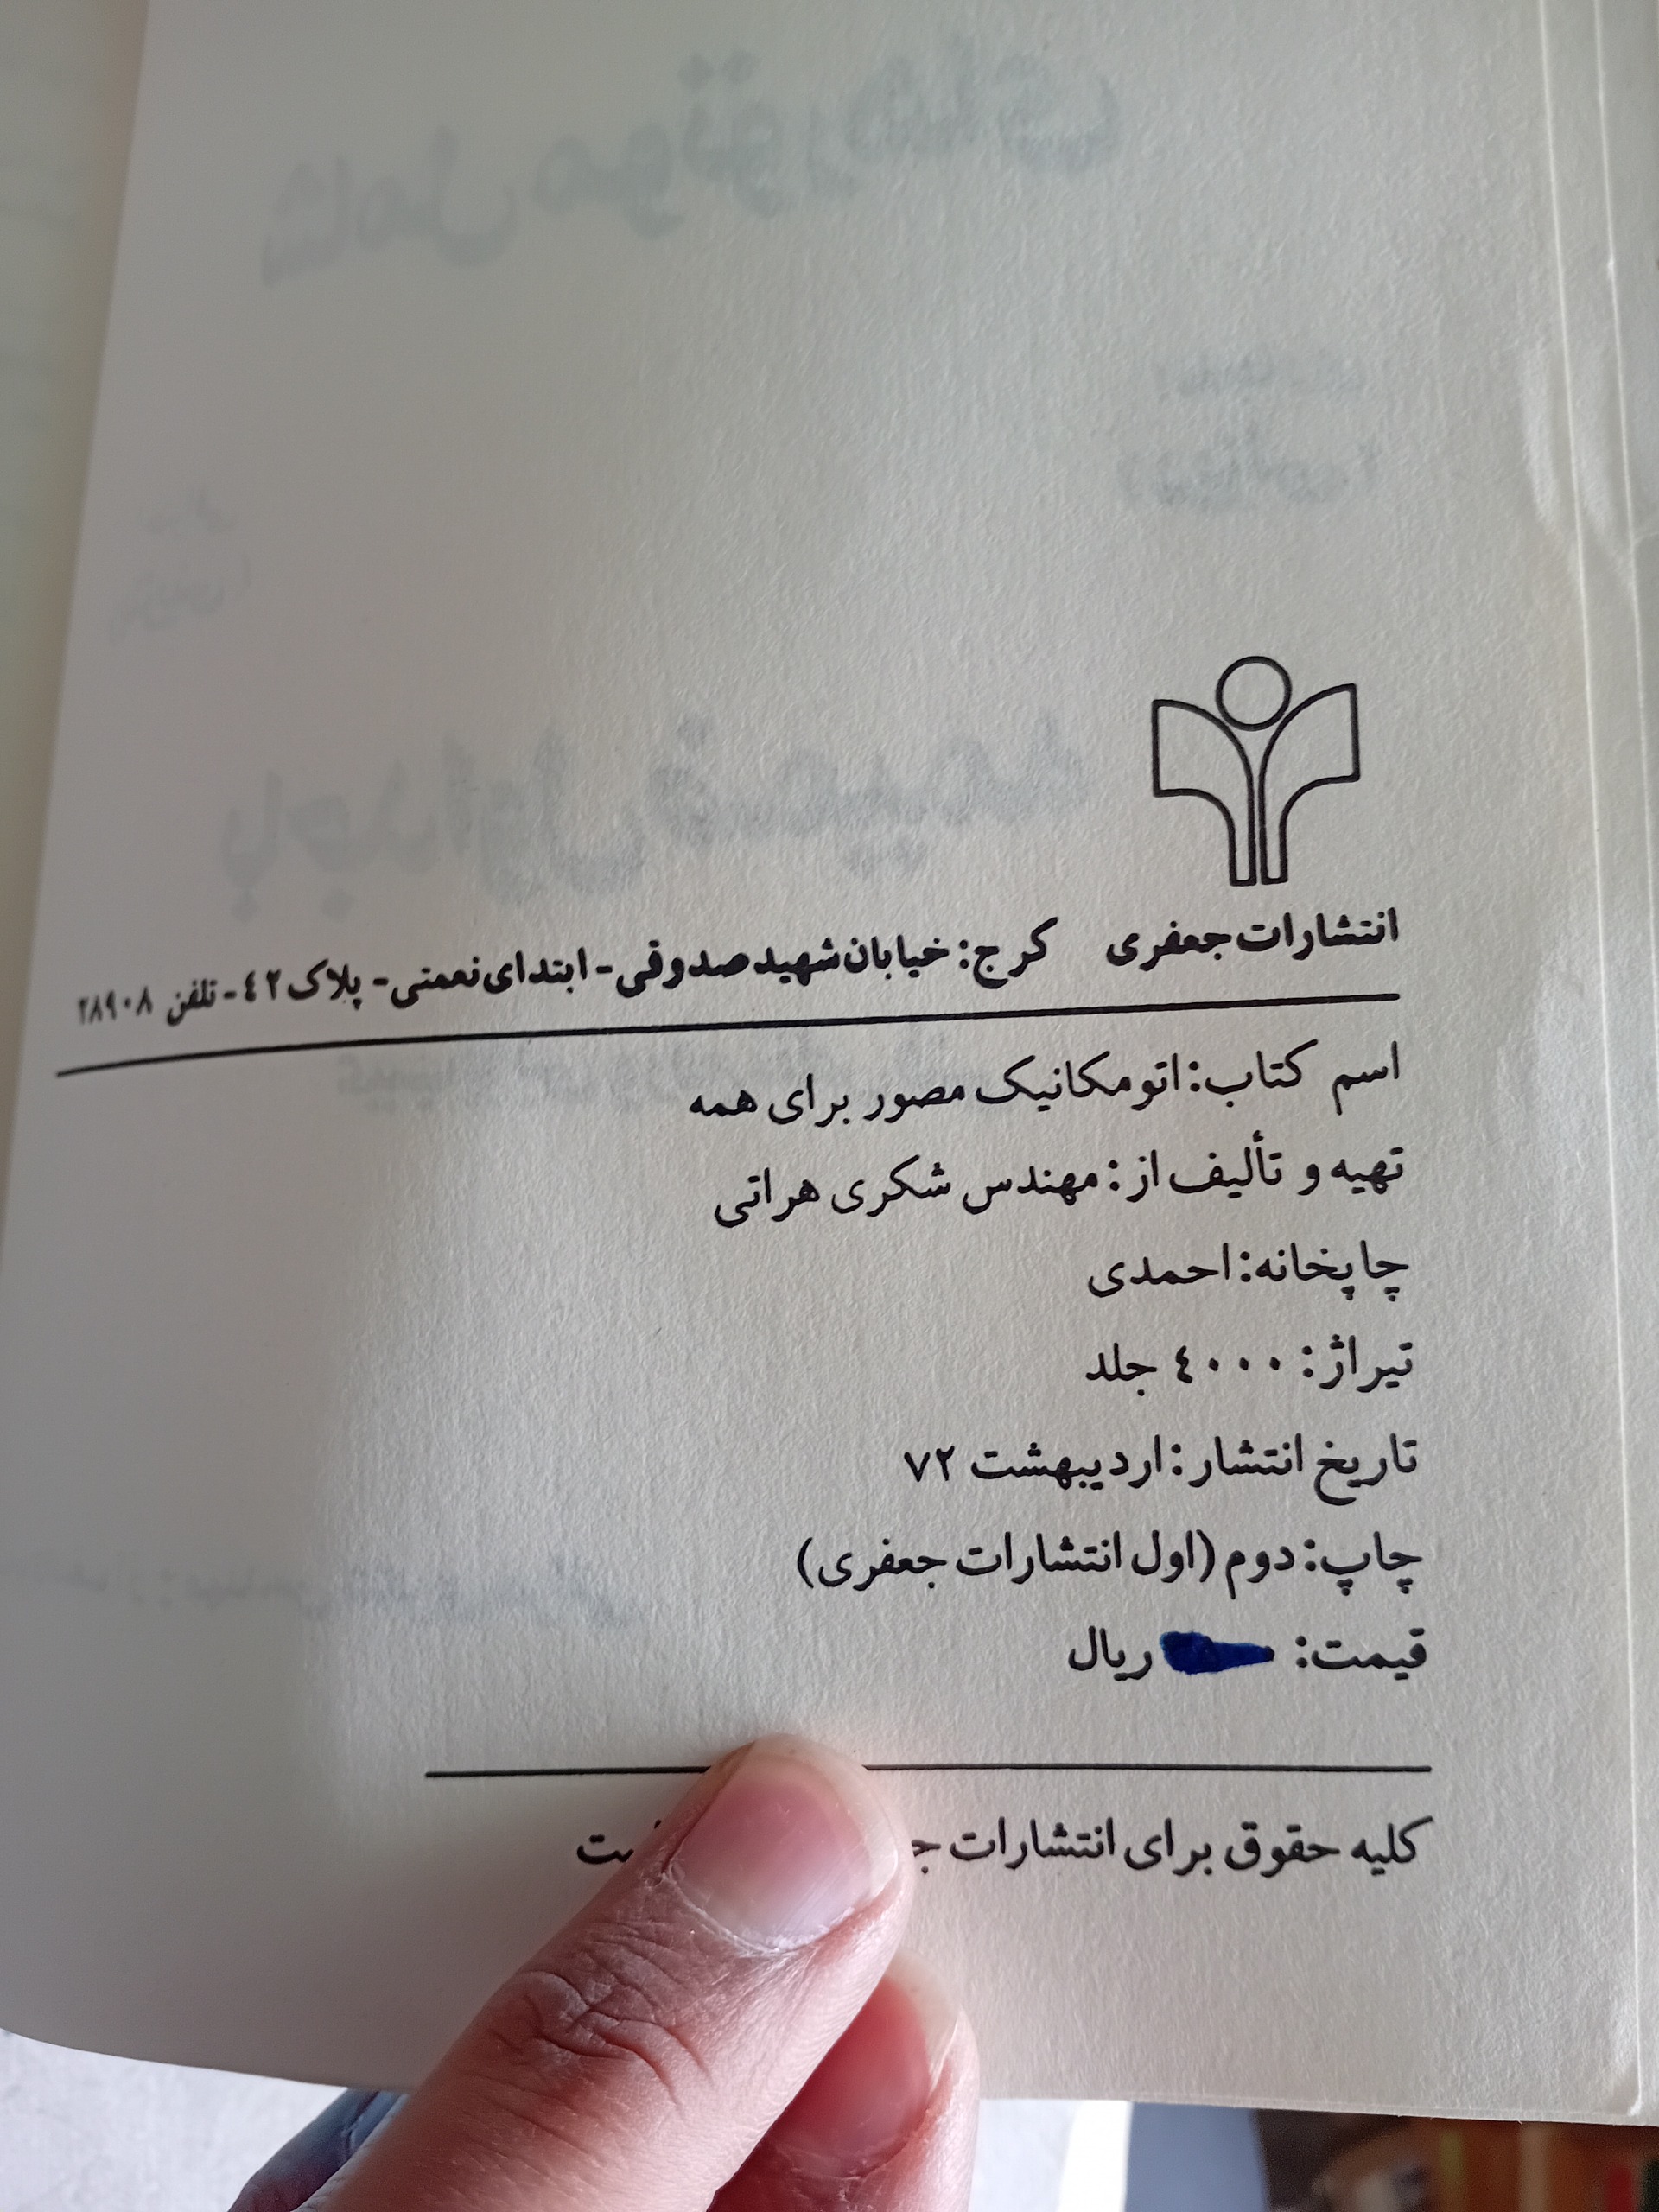 انتشارات جعفری کرج: خیابان شهید صدوقی - ابتدای نعمتی - پلاک ٤٢ - تلفن ٢٨٩٠٨
اسم کتاب: اتومکانیک مصور برای همه
تهیه و تألیف از: مهندس شکری هراتی
چاپخانه: احمدی
تیراژ: ٤٠٠٠ جلد
تاریخ انتشار: اردیبهشت ٧٢
چاپ: دوم (اول انتشارات جعفری)
قیمت: ریال
کلیه حقوق برای انتشارات